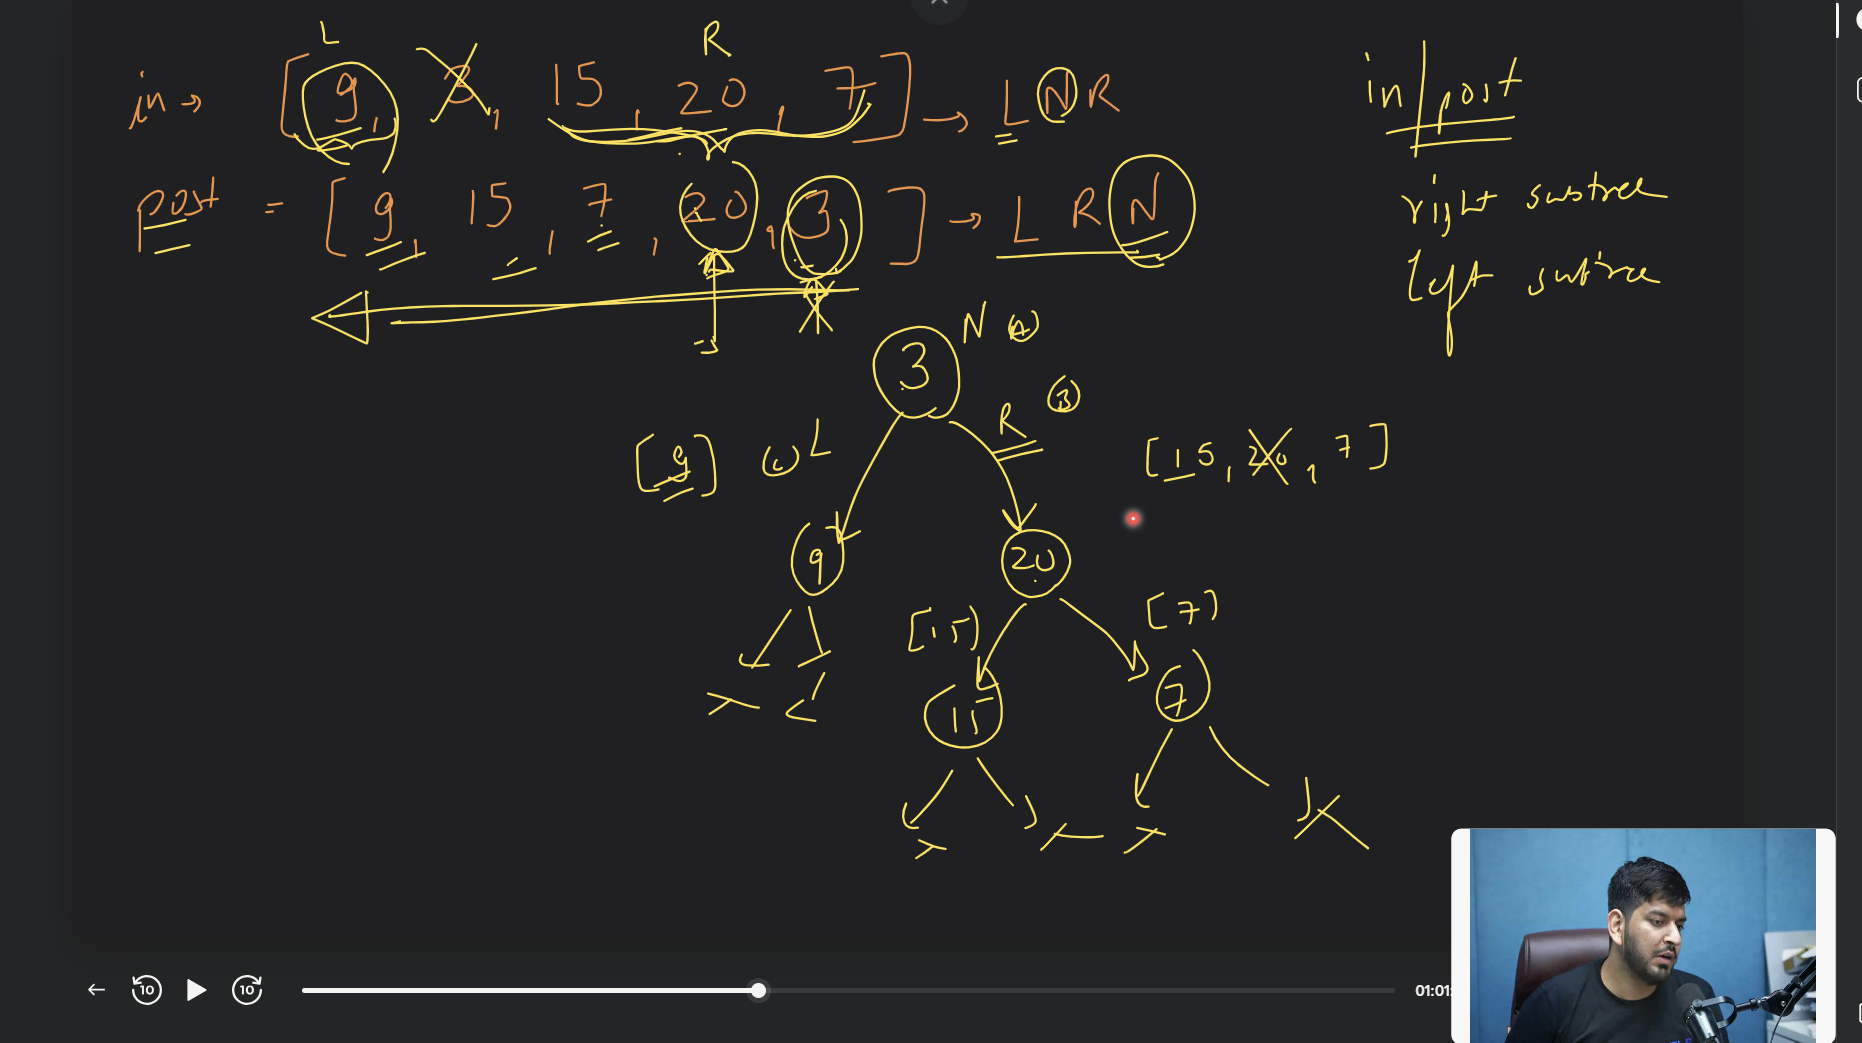 L
R
in → [ 9, 3, 15, 20, 7 ] → L N R
in/post
post = [ 9, 15, 7, 20, 3 ] → L R N
right subtree
left subtree
3 N
R 3
[9] L
[15, 20, 7]
9
20
[15]
[7]
15
7
10
10
01:01